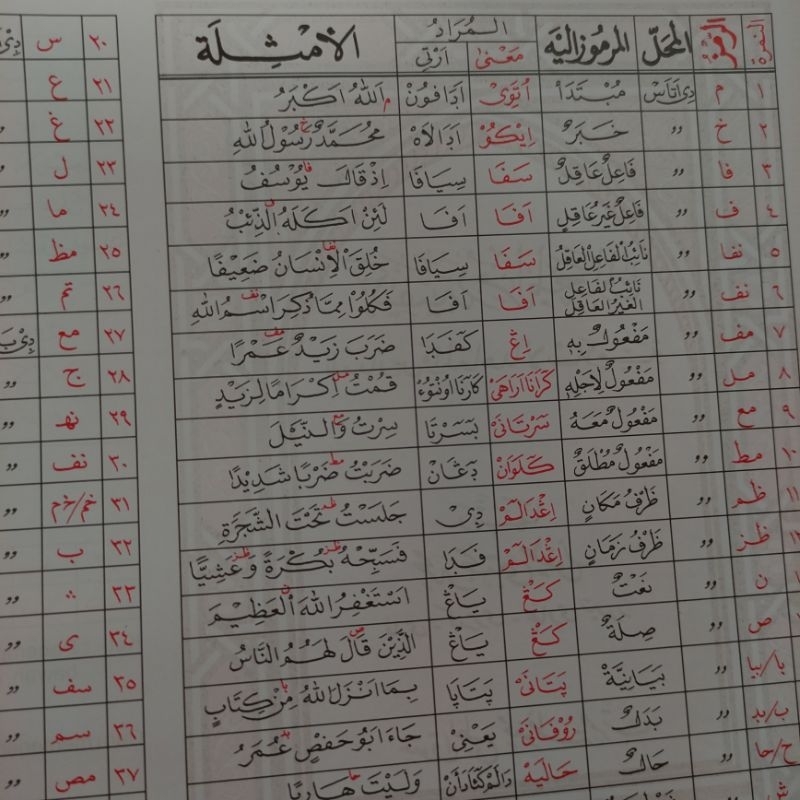 النمرة الرمز المحل المرموز اليه المراد الامثلة
معنى ارتي
١ م دي اتاس مبتدأ اُتَوِيْ اداڤون اَللهُ اَكْبَرُ
٢ خ " خَبَرٌ اِيْكُوْ ادالاه مُحَمَّدٌ رَسُوْلُ اللهِ
٣ فا " فَاعِلٌ عَاقِلٌ سَڤَا سياڤا اِذْ قَالَ يُوْسُفُ
٤ ف " فَاعِلٌ غَيْرُ عَاقِلٍ اَڤَا اَڤَا لَئِنْ اَكَلَهُ الذِّئْبُ
٥ نفا " نَائِبُ الفَاعِلِ العَاقِلُ سَڤَا سياڤا خُلِقَ الْاِنْسَانُ ضَعِيْفًا
٦ نف " نَائِبُ الفَاعِلِ الغَيْرُ العَاقِلِ اَڤَا اَڤَا فَكُلُوْا مِمَّا ذُكِرَ اسْمُ اللهِ
٧ مف " مَفْعُوْلٌ بِهِ اِڠ كڤدا ضَرَبَ زَيْدٌ عَمْرًا
٨ مل " مَفْعُوْلٌ لِاَجْلِهِ كَرَانَا اَرَاهَيْ كارنا اونتوء قُمْتُ اِكْرَامًا لِزَيْدٍ
٩ مع " مَفْعُوْلٌ مَعَهُ سَرْتَانَيْ بسرتا سِرْتُ وَالنِّيْلَ
١٠ مط " مَفْعُوْلٌ مُطْلَقٌ كَلَوَانْ دڠان ضَرَبْتُ ضَرْبًا شَدِيْدًا
١١ ظم " ظَرْفُ مَكَانٍ اِڠْدَالَمْ دي جَلَسْتُ تَحْتَ الشَّجَرَةِ
١٢ ظز " ظَرْفُ زَمَانٍ اِڠْدَالَمْ ڤدا فَسَبِّحْهُ بُكْرَةً وَعَشِيًّا
ن " نَعْتٌ كَڠْ ياڠ اَسْتَغْفِرُ اللهَ الْعَظِيْمَ
ص " صِلَةٌ كَڠْ ياڠ الَّذِيْنَ قَالَ لَهُمُ النَّاسُ
با/بيا " بَيَانِيَّةٌ پَتَانَيْ پتاڤا بِمَا اَنْزَلَ اللهُ مِنْ كِتَابٍ
ب/بد " بَدَلٌ رُوْڤَانَيْ يعني جَاءَ اَبُوْ حَفْصٍ عُمَرُ
ح/حا " حَالٌ حَالَيْهْ دالم كأداءن وَلَّيْتَ هَارِبًا
٢٠ س
٢١ ع
٢٢ غ "
٢٣ ل "
٢٤ ما "
٢٥ مظ "
٢٦ تم "
٢٧ مع
٢٨ ج "
٢٩ نه "
٣٠ نف "
٣١ خم/خم "
٣٢ ب "
٣٣ "
٣٤ ى "
٣٥ سف "
٣٦ سم "
٣٧ مص "